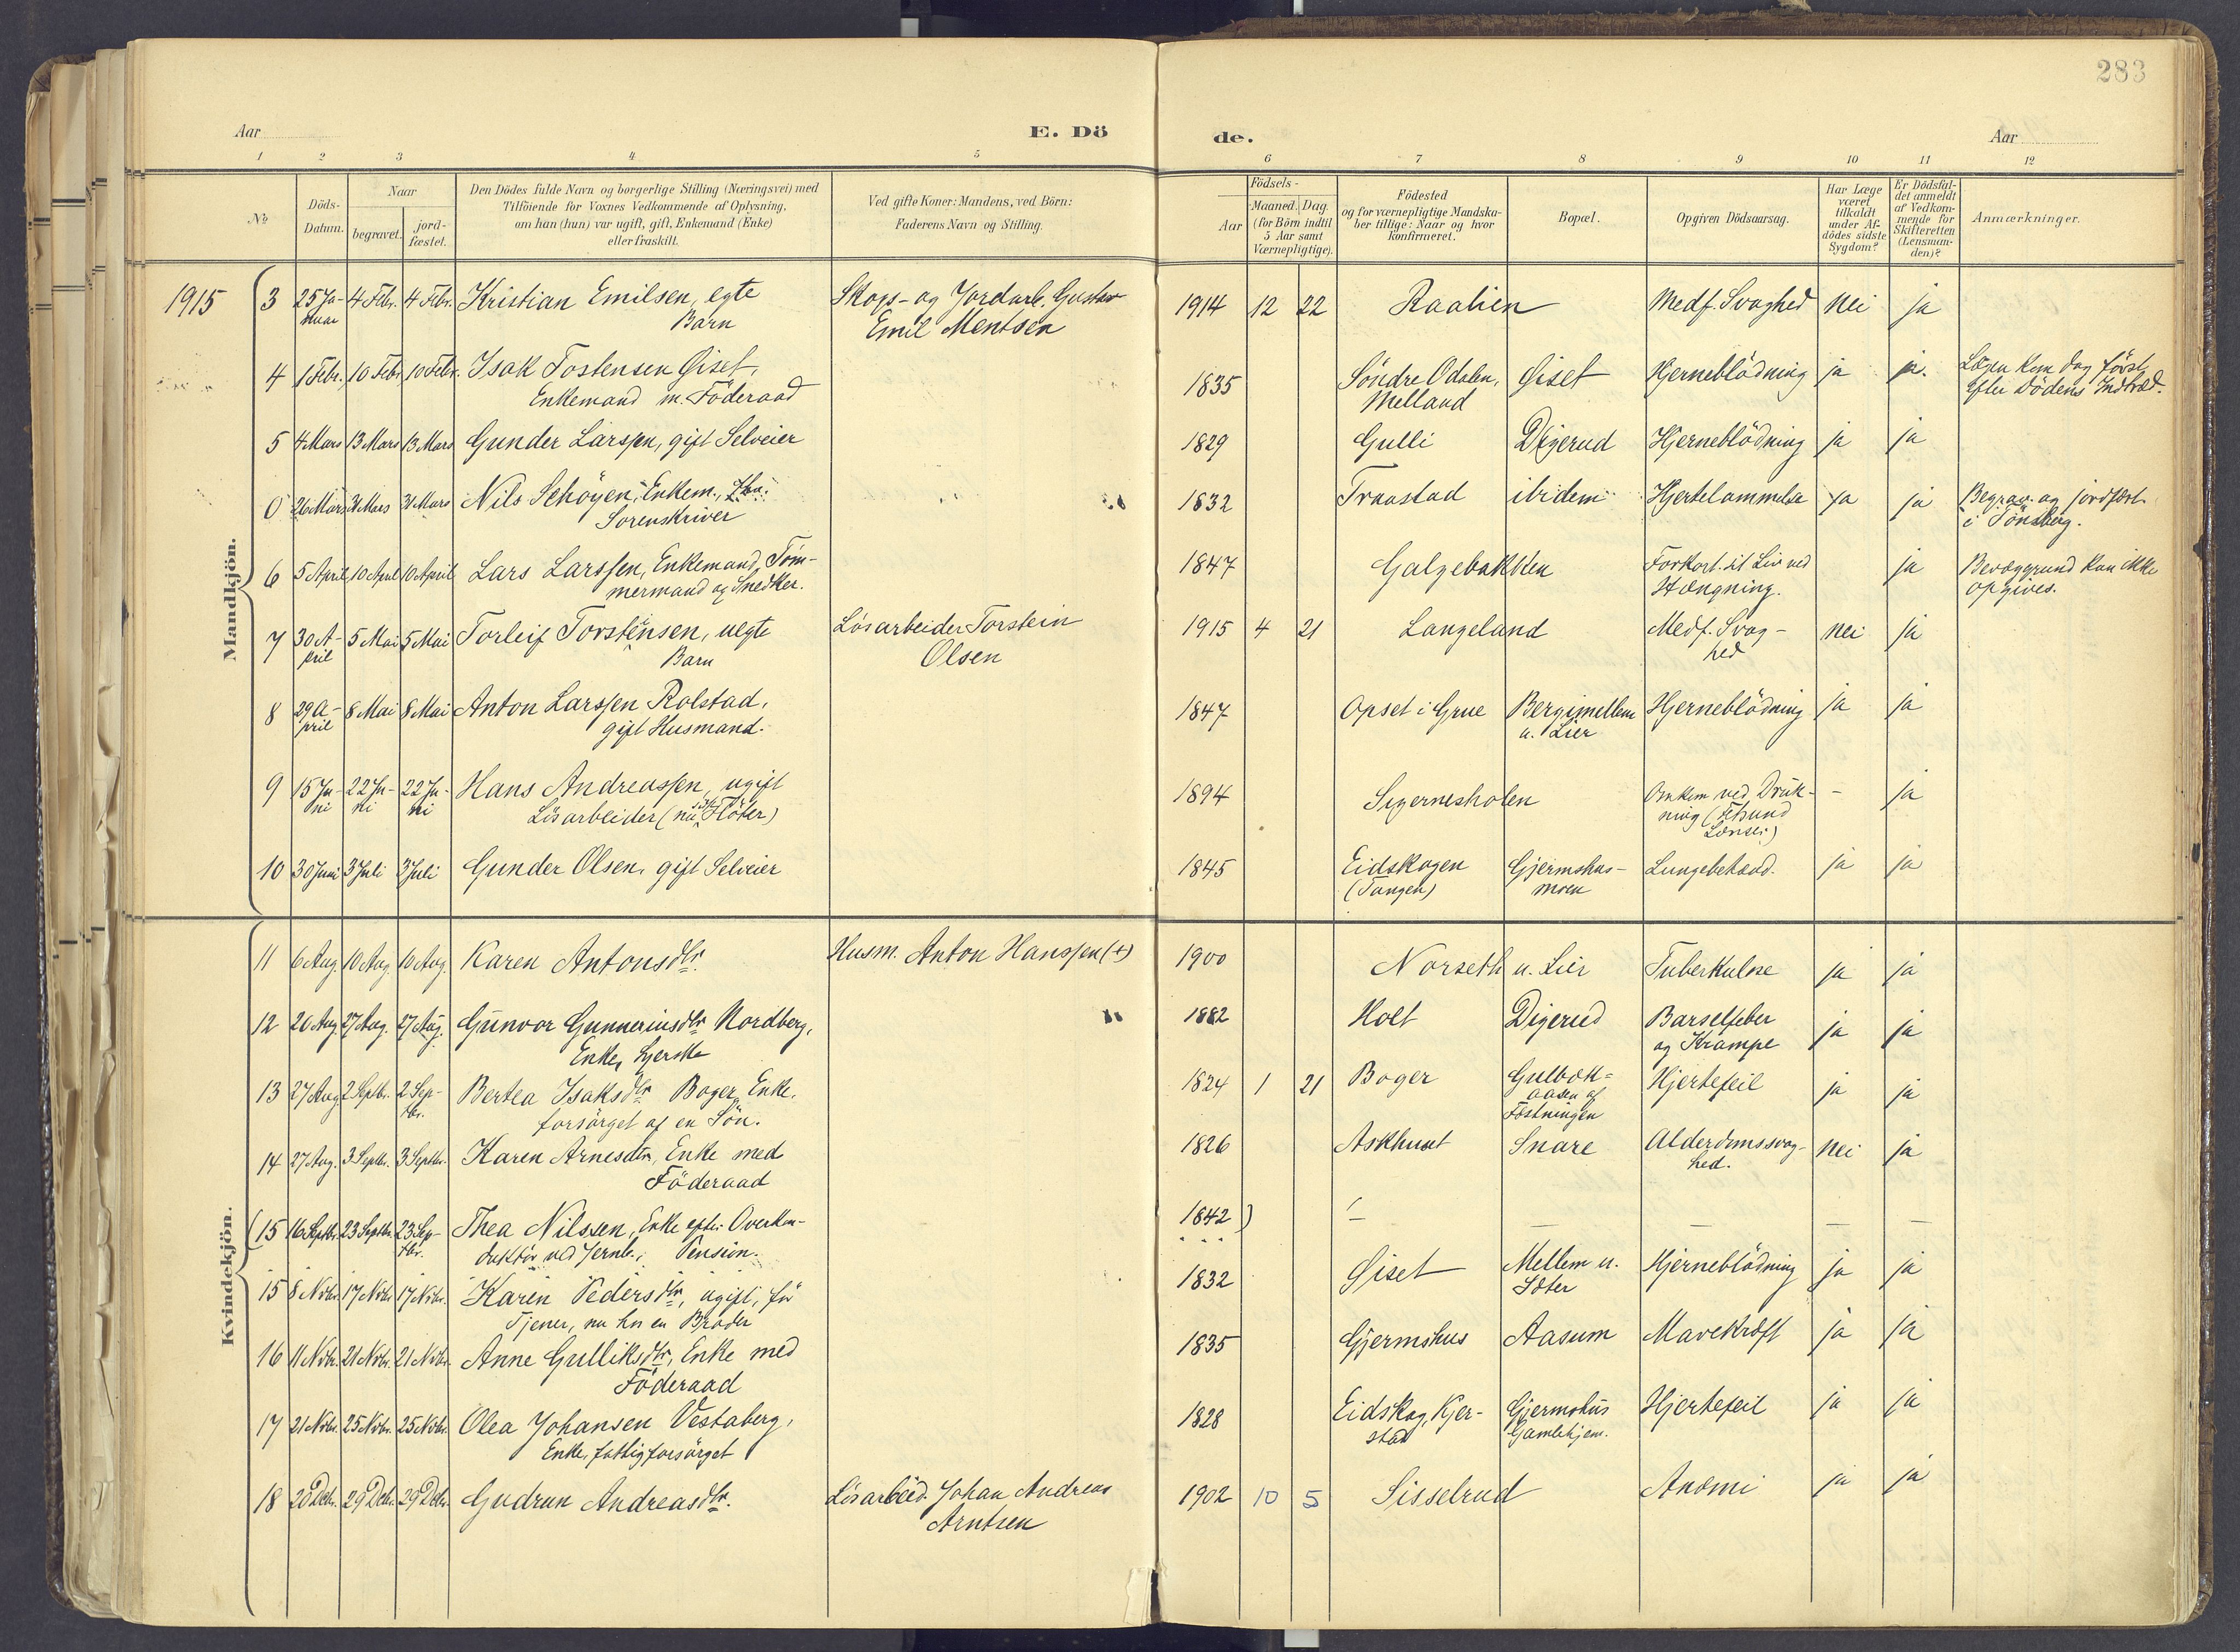 283
Aar
E. Dö
de.
Aar
1 2 3 4 5 6 7 8 9 10 11 12
No
Döds-
Datum.
Naar
begravet.
jord-
fæstet.
Den Dödes fulde Navn og borgerlige Stilling (Næringsvei) med
Tilföiende for Voxnes Vedkommende af Oplysning,
om han (hun) var ugift, gift, Enkemand (Enke)
eller fraskilt.
Ved gifte Koner: Mandens, ved Börn:
Faderens Navn og Stilling.
Födsels-
Aar
Maaned. Dag.
(for Börn indtil
5 Aar samt
Værnepligtige).
Födested
og for værnepligtige Mandska-
ber tillige: Naar og hvor
konfirmeret.
Bopæl.
Opgiven Dödsaarsag.
Har Læge
været
tilkaldt
under Af-
dödes sidste
Sygdom?
Er Dödsfal-
det anmeldt
af Vedkom-
mende for
Skifteretten
(Lensman-
den)?
Anmærkninger.
Mandkjön.
1915 3 25 Ja- 4 Febr. 4 Febr. Kristian Emilsen, egte Skogs- og Jordarb. Gustav 1914 12 22 Raalien Medf. Svaghed nei ja
nuar Barn Emil Mentsen
4 1 Febr. 10 Febr. 10 Febr. Isak Tostensen Giset, 1835 Söndre Odalen, Giset Hjerneblödning ja ja. Lægen kom dog först
Enkemand m. Föderaad Melland efter Dödens Indtræd.
5 4 Mars 13 Mars 13 Mars Gunder Larssen, gift Selveier 1829 Gulli Digerud Hjerneblödning ja ja
0 26 Mars 31 Mars 31 Mars Nils Schöyen, Enkem., 1832 Traastad ibidem Hjertelammelse ja ja Begrav. og jordfæst.
Sorenskriver i Tönsberg.
6 5 April 10 April 10 April Lars Larssen, Enkemand, Töm- 1847 Galgebakken Forkort. sit Liv ved ja Bevæggrund kan ikke
mermand og Snedker. Hængning. opgives.
7 30 A- 5 Mai 5 Mai Torleif Torstensen, uegte Lösarbeider Torstein 1915 4 21 Langeland Medf. Svag- nei ja
pril Barn Olsen hed
8 29 A- 8 Mai 8 Mai Anton Larssen Rolstad, 1847 Opset i Grue Bergimellem Hjerneblödning ja ja
pril gift Husmand. u. Lier
9 15 Ju- 22 Ju- 22 Ju- Hans Andreassen, ugift 1894 Sigernesholen Omkom ved Druk- - ja
ni ni ni Lösarbeider (nu sidst Flöter) ning (Fetsund
Lænser)
10 30 Juni 3 Juli 3 Juli Gunder Olsen, gift Selveier 1845 Eidskogen Gjermshus- Lungebetænd. ja ja
(Tangen) moen
Kvindekjön.
11 6 Aug. 10 Aug. 10 Aug. Karen Antonsdtr. Husm. Anton Hanssen (+) 1900 Norseth u. Lier Tuberkulose ja ja
12 20 Aug 27 Aug. 27 Aug. Gunvor Gunneriusdtr Nordberg, 1882 Holt Digerud Barselfeber ja ja
Enke, og Krampe
13 27 Aug 2 Septbr. 2 Sep- Bertea Isaksdtr Boger, Enke, 1824 1 21 Boger Gulbok= Hjertefeil ja ja
tbr. forsörget af en Sön. aasen af
Fæstningen
14 27 Aug. 3 Septbr. 3 Septbr. Karen Arnesdtr, Enke med 1826 Askhuset Snare Alderdomssvag- nei ja
Föderaad hed.
(15 16 Septbr. 23 Septbr. 23 Sep- Thea Nilssen, Enke efter Overkon- 1842) - - - - -
tbr. duktör ved Jernb., Pension.
15 8 Novbr. 17 Novbr. 17 Novbr. Karen Pedersdtr, ugift, för 1832 Giset Mellem u. Hjerneblödning ja ja
Tjener, nu hos en Broder Sæter
16 11 Novbr. 21 Novbr. 21 Novbr. Anne Gulliksdtr, Enke med 1835 Gjermshus Aasum Mavekræft ja ja
Föderaad
17 21 Novbr. 25 Novbr. 25 Novbr. Olea Johansen Vestaberg, 1828 Eidskog, Kjer- Gjermshus Hjertefeil ja ja
Enke, fattigforsörget stad Gamlehjem.
18 20 Decbr. 29 Decbr. 29 Decbr. Gudrun Andreasdtr. Lösarbeid. Johan Andreas 1902 10 5 Sisselrud Anæmi ja ja
Arntsen